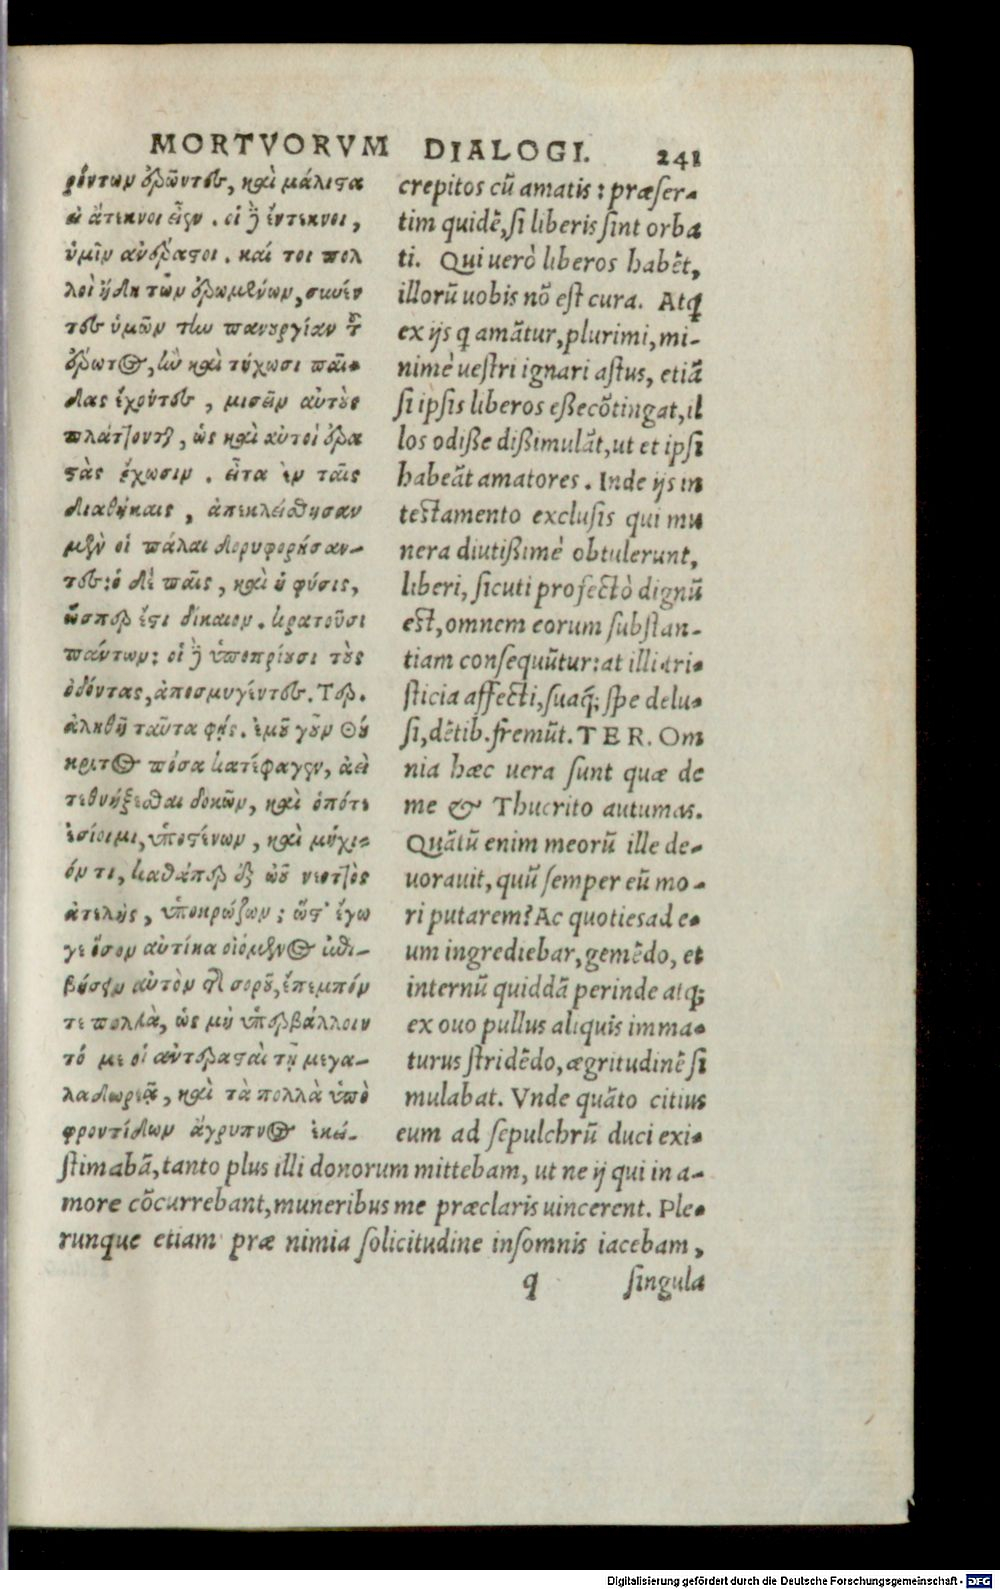 MORTVORVM DIALOGI. 241
ρόντων ἐρῶντες, καὶ μάλιστα
εἰ ἄτεκνοι εἶεν. οἱ δὲ ἔντεκνοι,
ὑμῖν ἀνέραστοι. καί τοι πολ
λοὶ ἤδη τῶν ἐρωμένων, συνέν
τες ὑμῶν τὴν πανουργίαν τοῦ
ἔρωτος, ἢν καὶ τύχωσι παῖ-
δας ἔχοντες, μισεῖν αὐτοὺς
πλάττονται, ὡς καὶ αὐτοὶ ἐρα
στὰς ἔχωσιν. εἶτα ἐν ταῖς
διαθήκαις, ἀπεκλείσθησαν
μὲν οἱ πάλαι δορυφορήσαν-
τες: ὁ δὲ παῖς, καὶ ἡ φύσις,
ὥσπερ ἐστὶ δίκαιον, κρατοῦσι
πάντων: οἱ δὲ ὑποπρίουσι τοὺς
ὀδόντας, ἀποσμυγέντες. Τερ.
ἀληθῆ ταῦτα φῄς. ἐμοῦ γοῦν Θού
κριτος πόσα κατέφαγεν, ἀεὶ
τεθνήξεσθαι δοκῶν, καὶ ὁπότε
ἐσίοιμι, ὑποστένων, καὶ μύχι-
όν τι, καθάπερ ἐξ ὠοῦ νεοττὸς
ἀτελὴς, ὑποκρώζων; ὥστ' ἔγω
γε ὅσον αὐτίκα οἰόμενος ἐπι-
βήσειν αὐτὸν τῆς σοροῦ, ἔπεμπόν
τε πολλὰ, ὡς μὴ ὑπερβάλλοιν
τό με οἱ ἀντερασταὶ τῇ μεγα-
λαδωρεᾷ, καὶ τὰ πολλὰ ὑπὸ
φροντίδων ἄγρυπνος ἐκεί-
crepitos cũ amatis: præser-
tim quidẽ, si liberis sint orba
ti. Qui uerò liberos habẽt,
illorũ uobis nõ est cura. Atq
ex ijs q amãtur, plurimi, mi-
nimè uestri ignari astus, etiã
si ipsis liberos eße cõtingat, il
los odiße dißimulãt, ut et ipsi
habeãt amatores. Inde ijs in
testamento exclusis qui mu
nera diutißimè obtulerunt,
liberi, sicuti profectò dignũ
est, omnem eorum substan-
tiam consequũtur: at illi tri-
sticia affecti, suaq; spe delu-
si, dẽtib. fremũt. TER. Om
nia hæc uera sunt quæ de
me & Thucrito autumas.
Quãtũ enim meorũ ille de-
uorauit, quũ semper eũ mo-
ri putarem? Ac quoties ad e-
um ingrediebar, gemẽdo, et
internũ quiddã perinde atq;
ex ouo pullus aliquis imma-
turus stridẽdo, ægritudinẽ si
mulabat. Vnde quãto citius
eum ad sepulchrũ duci exi-
stimabã, tanto plus illi donorum mittebam, ut ne ij qui in a-
more cõcurrebant, muneribus me præclaris uincerent. Ple-
runque etiam præ nimia solicitudine insomnis iacebam,
q singula
Digitalisierung gefördert durch die Deutsche Forschungsgemeinschaft - DFG